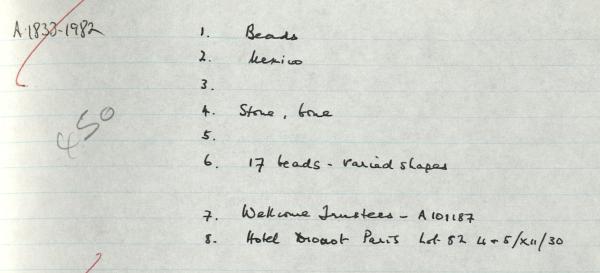 A.1833-1982
1. Beads
2. Mexico
3.
4. Stone, bone
5.
450
6. 17 beads - varied shapes
7. Wellcome Trustees - A101187
8. Hotel Drouot Paris Lot. 82 4+5/XII/30